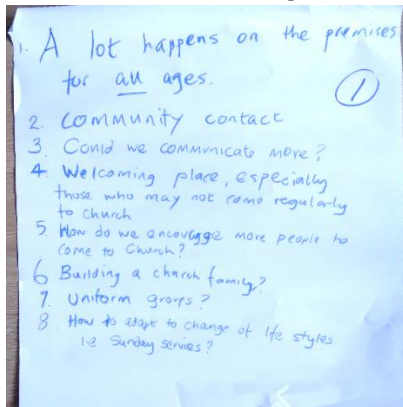 1. A lot happens on the premises
for all ages.
①
2. Community contact
3 Could we communicate more?
4. Welcoming place, especially
those who may not come regularly
to church
5 How do we encouragge more people to
come to Church?
6 Building a church family?
7. Uniform groups?
8 How to adapt to change of life styles
i.e. Sunday services?